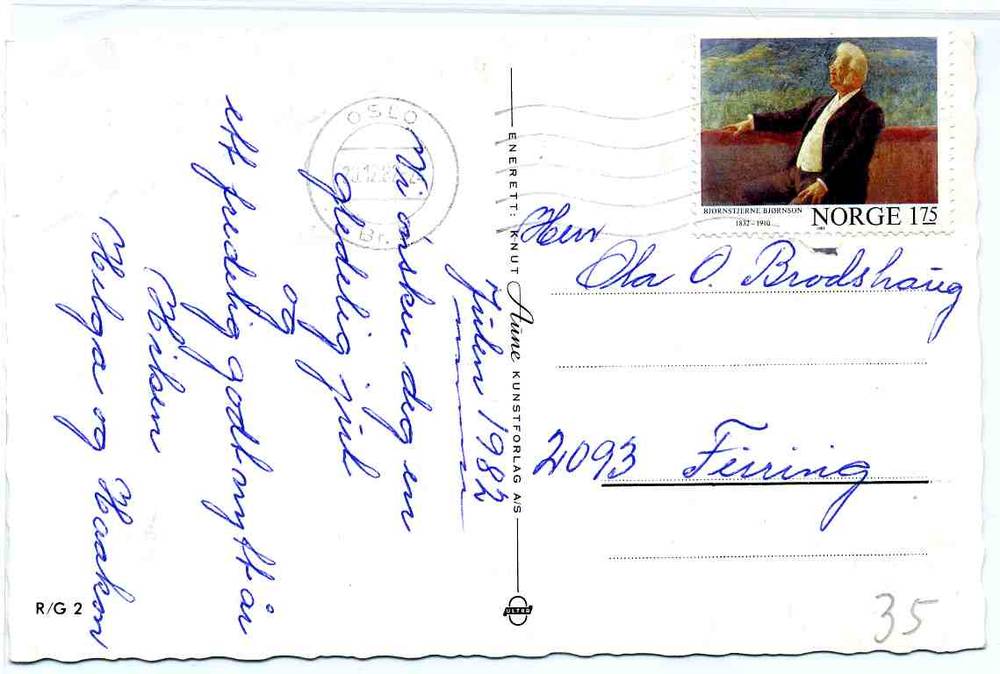 Julen 1982
Vi ønsker deg en
gledelig jul
og
ett fredelig godt nytt år
Hilsen
Helga og Haakon
R/G 2
OSLO
Br.
ENERETT: KNUT Aune KUNSTFORLAG A/S
ULTRA
BJØRNSTJERNE BJØRNSON
1832–1910
NORGE 175
Herr
Ola O. Brodshaug
2093 Feiring
35